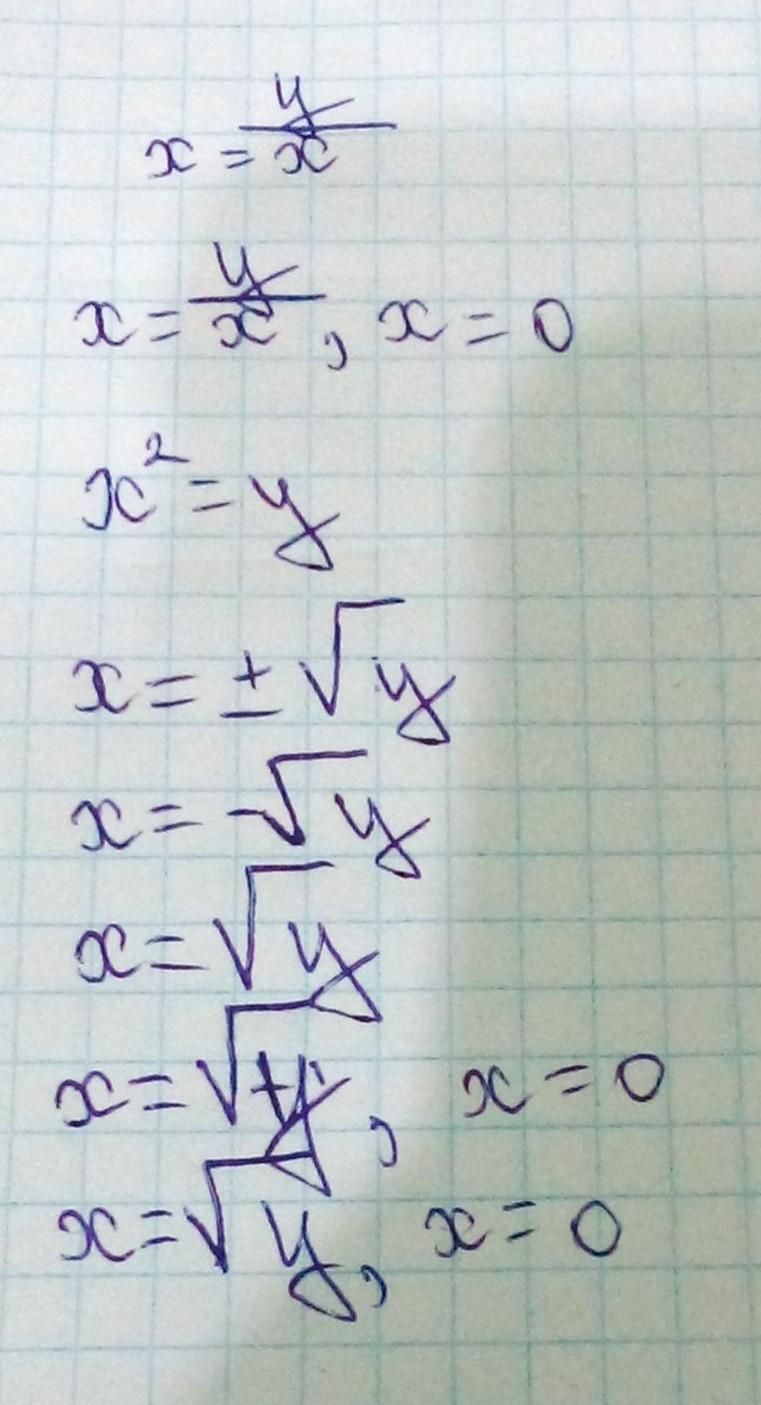 x = y/x
x = y/x, x = 0
x² = y
x = ± √y
x = -√y
x = √y
x = √y, x = 0
x = √y, x = 0